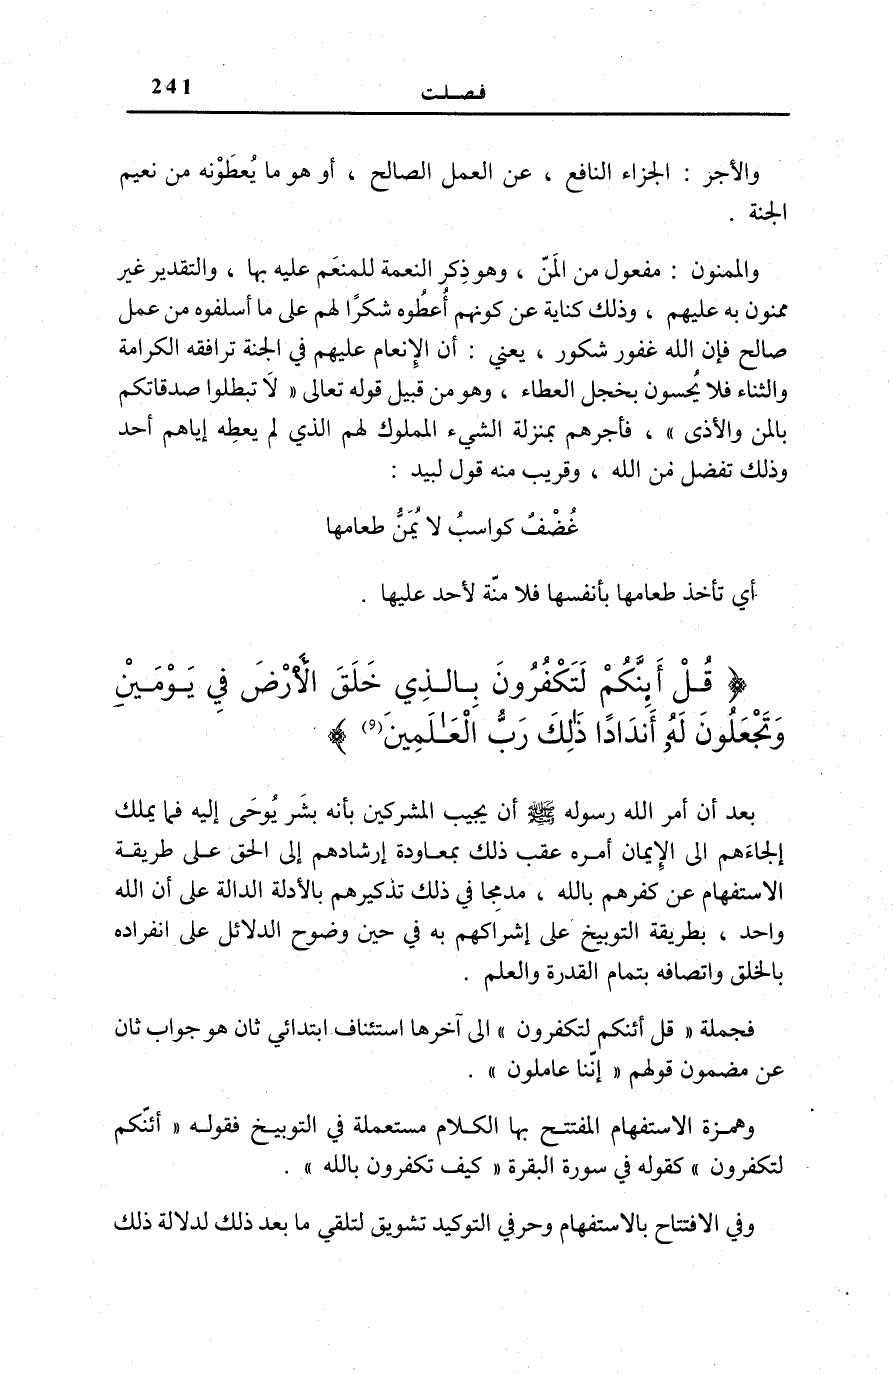 241
فصلت
والأجر : الجزاء النافع ، عن العمل الصالح ، أو هو ما يُعطَوْنه من نعيم
الجنة .
والممنون : مفعول من المَنّ ، وهو ذِكر النعمة للمنعَم عليه بها ، والتقدير غير
ممنون به عليهم ، وذلك كناية عن كونهم أُعطُوه شكرًا لهم على ما أسلفوه من عمل
صالح فإن الله غفور شكور ، يعني : أن الإنعام عليهم في الجنة ترافقه الكرامة
والثناء فلا يُحسون بخجل العطاء ، وهو من قبيل قوله تعالى « لَا تبطلوا صدقاتكم
بالمن والأذى » ، فأجرهم بمنزلة الشيء المملوك لهم الذي لم يعطِه إياهم أحد
وذلك تفضل من الله ، وقريب منه قول لبيد :
غُضْفٌ كواسبُ لا يُمَنُّ طعامها
أي تأخذ طعامها بأنفسها فلا منّة لأحد عليها .
﴿ قُلْ أَىِٕنَّكُمْ لَتَكْفُرُونَ بِالَّذِي خَلَقَ الْأَرْضَ فِي يَوْمَيْنِ
وَتَجْعَلُونَ لَهُۥ أَندَادًا ذَٰلِكَ رَبُّ الْعَـٰلَمِينَ (9) ﴾
بعد أن أمر الله رسوله ﷺ أن يجيب المشركين بأنه بشَر يُوحَى إليه فما يملك
إلجاءَهم الى الإيمان أمره عقب ذلك بمعاودة إرشادهم إلى الحق على طريقة
الاستفهام عن كفرهم بالله ، مدمجا في ذلك تذكيرهم بالأدلة الدالة على أن الله
واحد ، بطريقة التوبيخ على إشراكهم به في حين وضوح الدلائل على انفراده
بالخلق واتصافه بتمام القدرة والعلم .
فجملة « قل أئنكم لتكفرون » الى آخرها استئناف ابتدائي ثان هو جواب ثان
عن مضمون قولهم « إنّنا عاملون » .
وهمزة الاستفهام المفتتح بها الكلام مستعملة في التوبيخ فقوله « أئنّكم
لتكفرون » كقوله في سورة البقرة « كيف تكفرون بالله » .
وفي الافتتاح بالاستفهام وحرفي التوكيد تشويق لتلقي ما بعد ذلك لدلالة ذلك